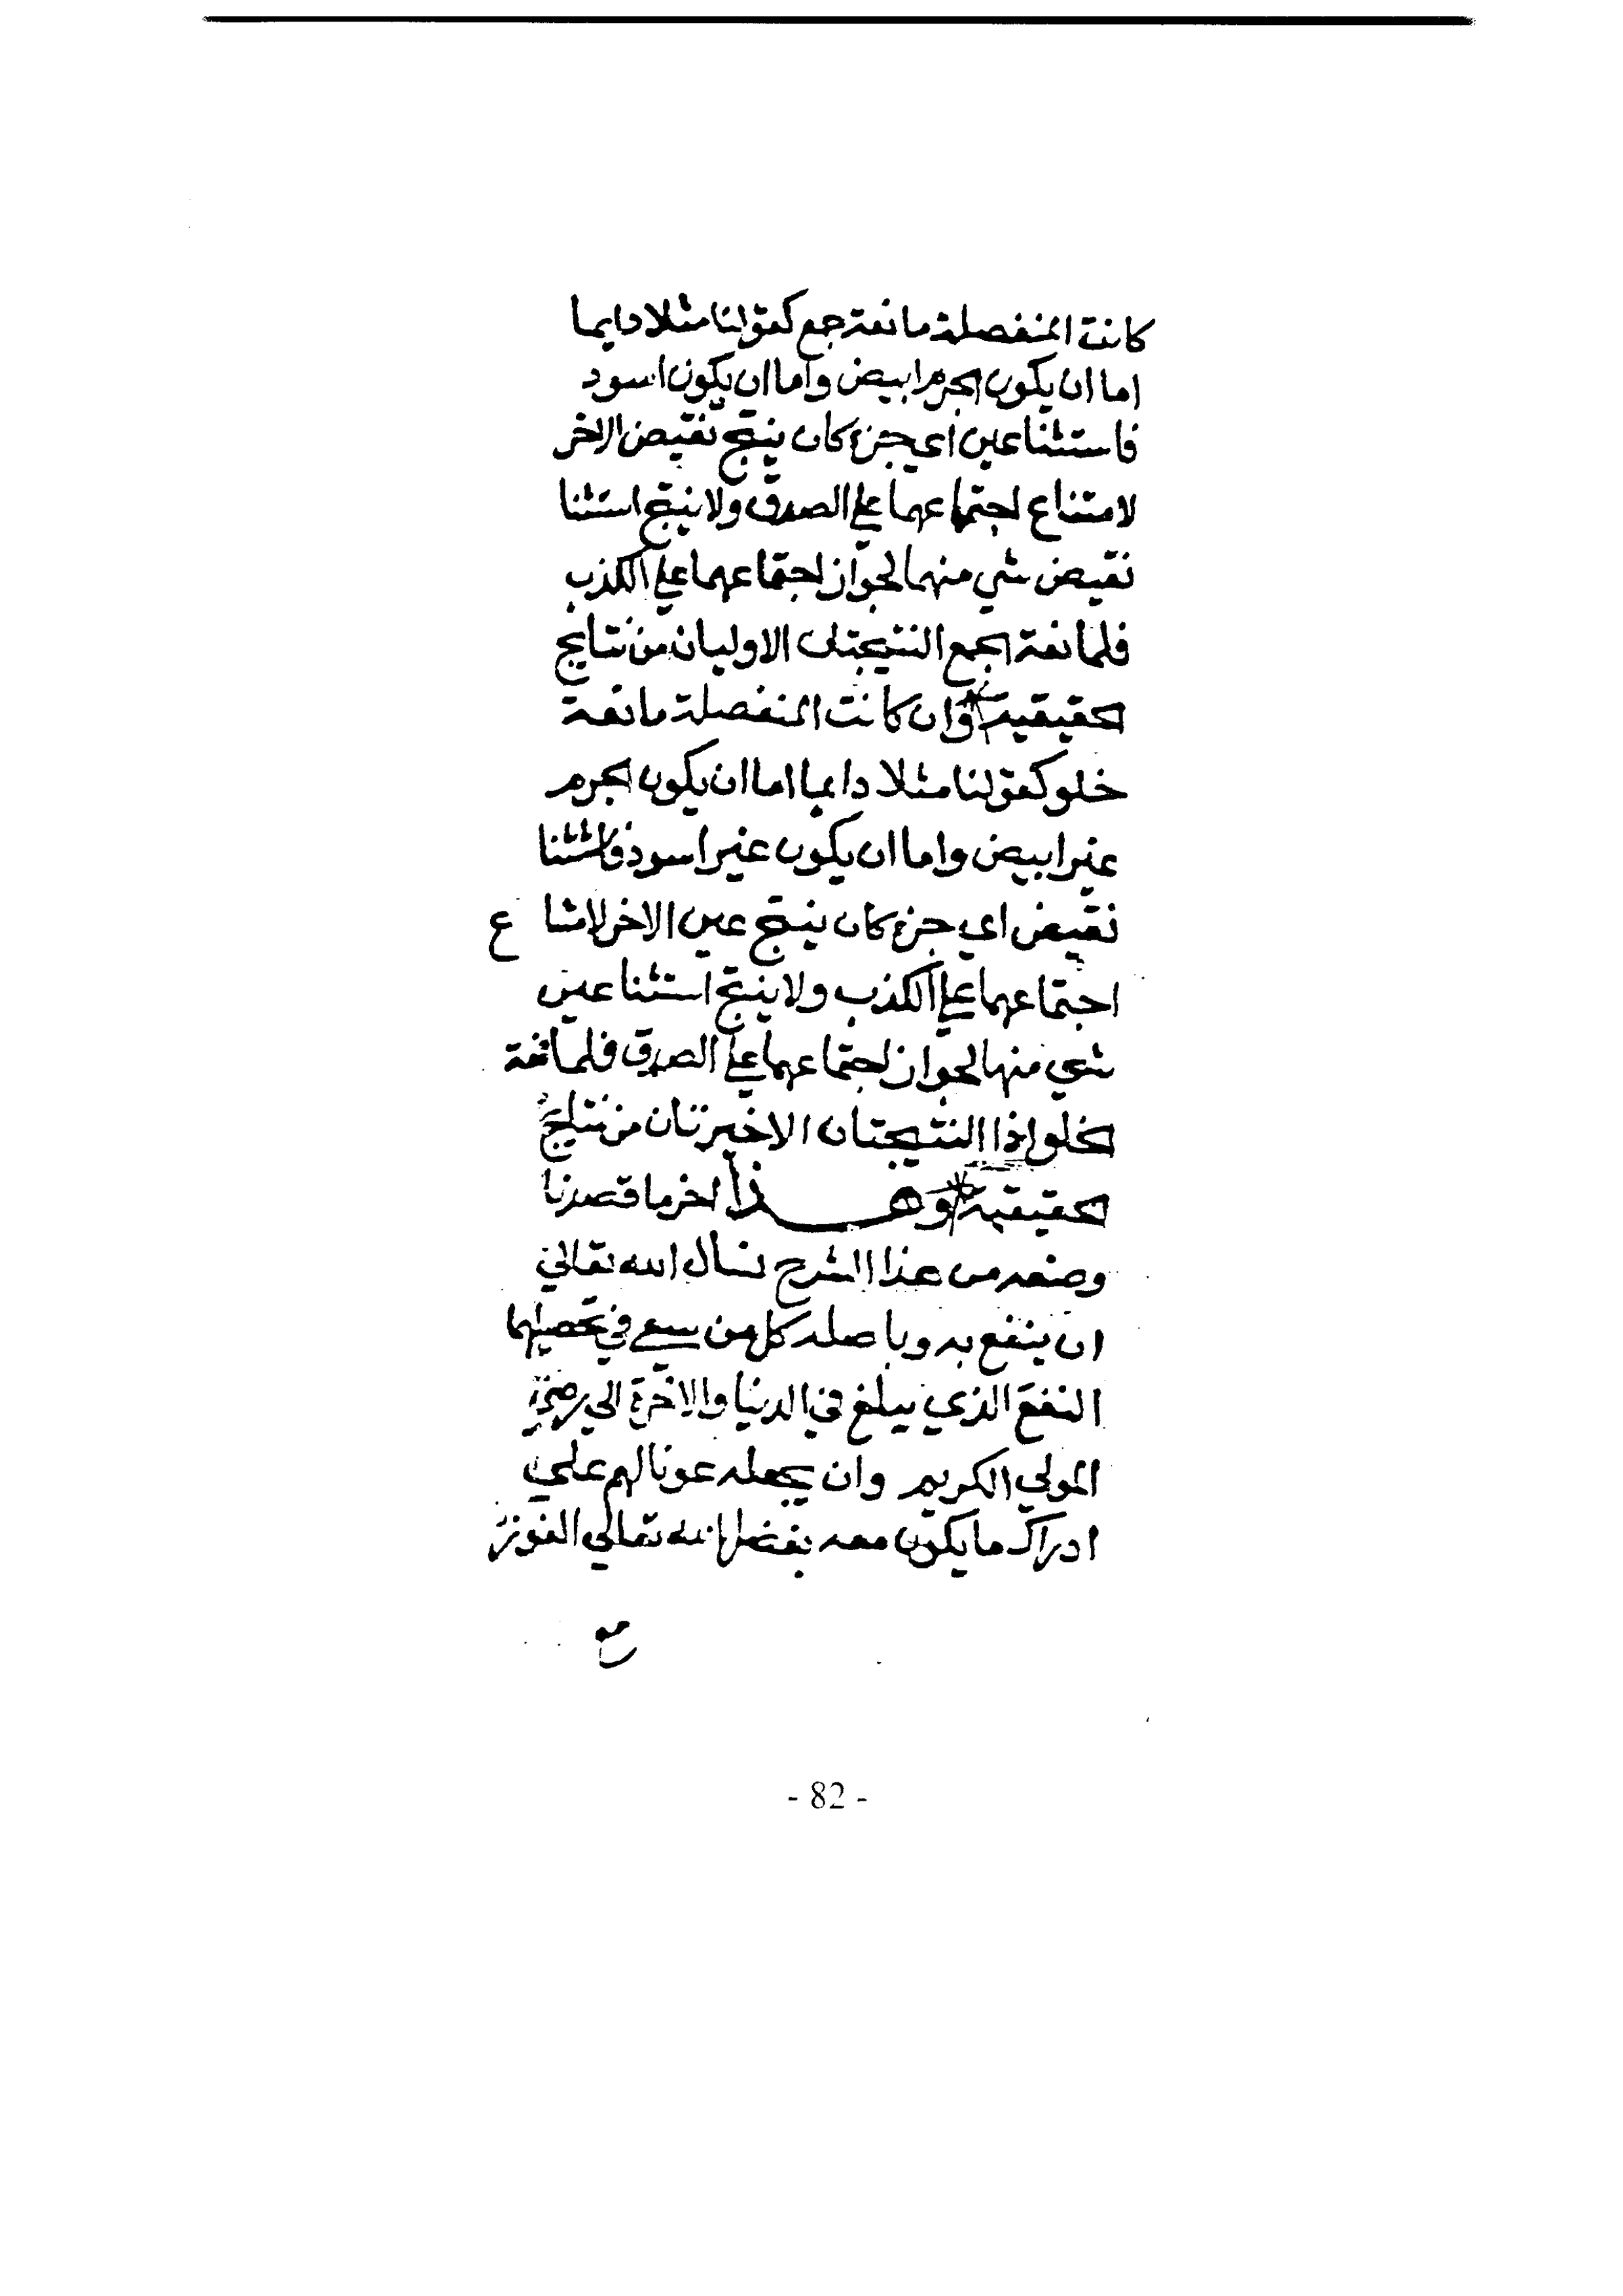 كانت المنفصلة مانعة جمع كقولنا مثلا دايما
اما ان يكون الجرم ابيض واما ان يكون اسود
فاستثنا عين اي جزء كان ينتج نقيض الاخر
لامتناع اجتماعهما علي الصدق ولا ينتج استثنا
نقيض شي منهما لجواز اجتماعهما علي الكذب
فلمانعة الجمع النتيجتان الاوليان من نتايج
الحقيقية وان كانت المنفصلة مانعة
خلو كقولنا مثلا دايما اما ان يكون الجرم
غير ابيض واما ان يكون غير اسود فاستثنا
نقيض اي جزء كان ينتج عين الاخر لامتنا ع
اجتماعهما علي الكذب ولا ينتج استثنا عين
شي منهما لجواز اجتماعهما علي الصدق فلمانعة
الخلو اذا النتيجتان الاخيرتان من نتايج
الحقيقية وهذا اخر ما قصدنا
وضعه من هذا الشرح نسال الله تعالي
ان ينفع به وباصله كل من سعي في تحصيلهما
النفع الذي يبلغ في الدنيا والاخرة الي
المولي الكريم وان يجعله عونا لهم علي
ادراك ما يكون معه بفضل الله تعالي الفوز
- 82 -